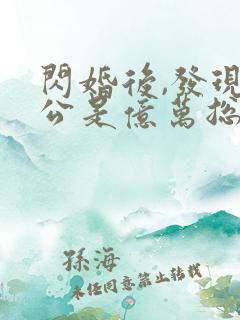 閃婚後,發現
公是億萬總
孫海
未經同意禁止轉載